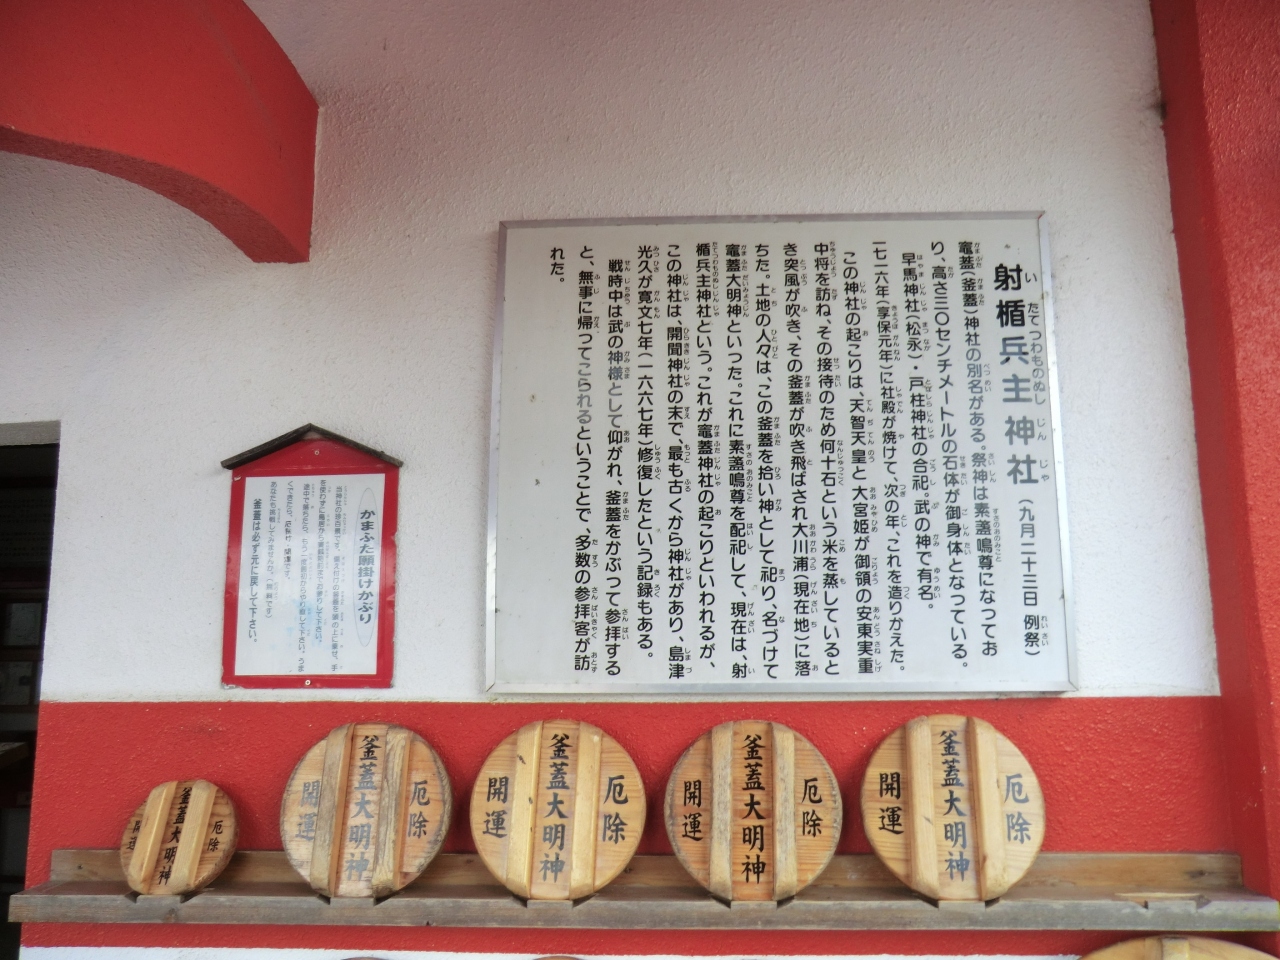 射楯兵主神社（九月二十三日 例祭）
竈蓋（釜蓋）神社の別名がある。祭神は素盞嗚尊になってお
り、高さ三〇センチメートルの石体が御身体となっている。
早馬神社（松永）・戸柱神社の合祀。武の神で有名。
一七一六年（享保元年）に社殿が焼けて、次の年、これを造りかえた。
この神社の起こりは、天智天皇と大宮姫が御領の安東実重
中将を訪ね、その接待のため何十石という米を蒸していると
き突風が吹き、その釜蓋が吹き飛ばされ大川浦（現在地）に落
ちた。土地の人々は、この釜蓋を拾い神として祀り、名づけて
竈蓋大明神といった。これに素盞嗚尊を配祀して、現在は、射
楯兵主神社という。これが竈蓋神社の起こりといわれるが、
この神社は、開聞神社の末で、最も古くから神社があり、島津
光久が寛文七年（一六六七年）修復したという記録もある。
戦時中は武の神様として仰がれ、釜蓋をかぶって参拝する
と、無事に帰ってこられるということで、多数の参拝客が訪
れた。
かまふた願掛けかぶり
あなたも挑戦してみませんか。（無料です）
釜蓋は必ず元に戻して下さい。
厄除
釜蓋大明神
開運
厄除
釜蓋大明神
開運
厄除
釜蓋大明神
開運
厄除
釜蓋大明神
開運
厄除
釜蓋大明神
開運